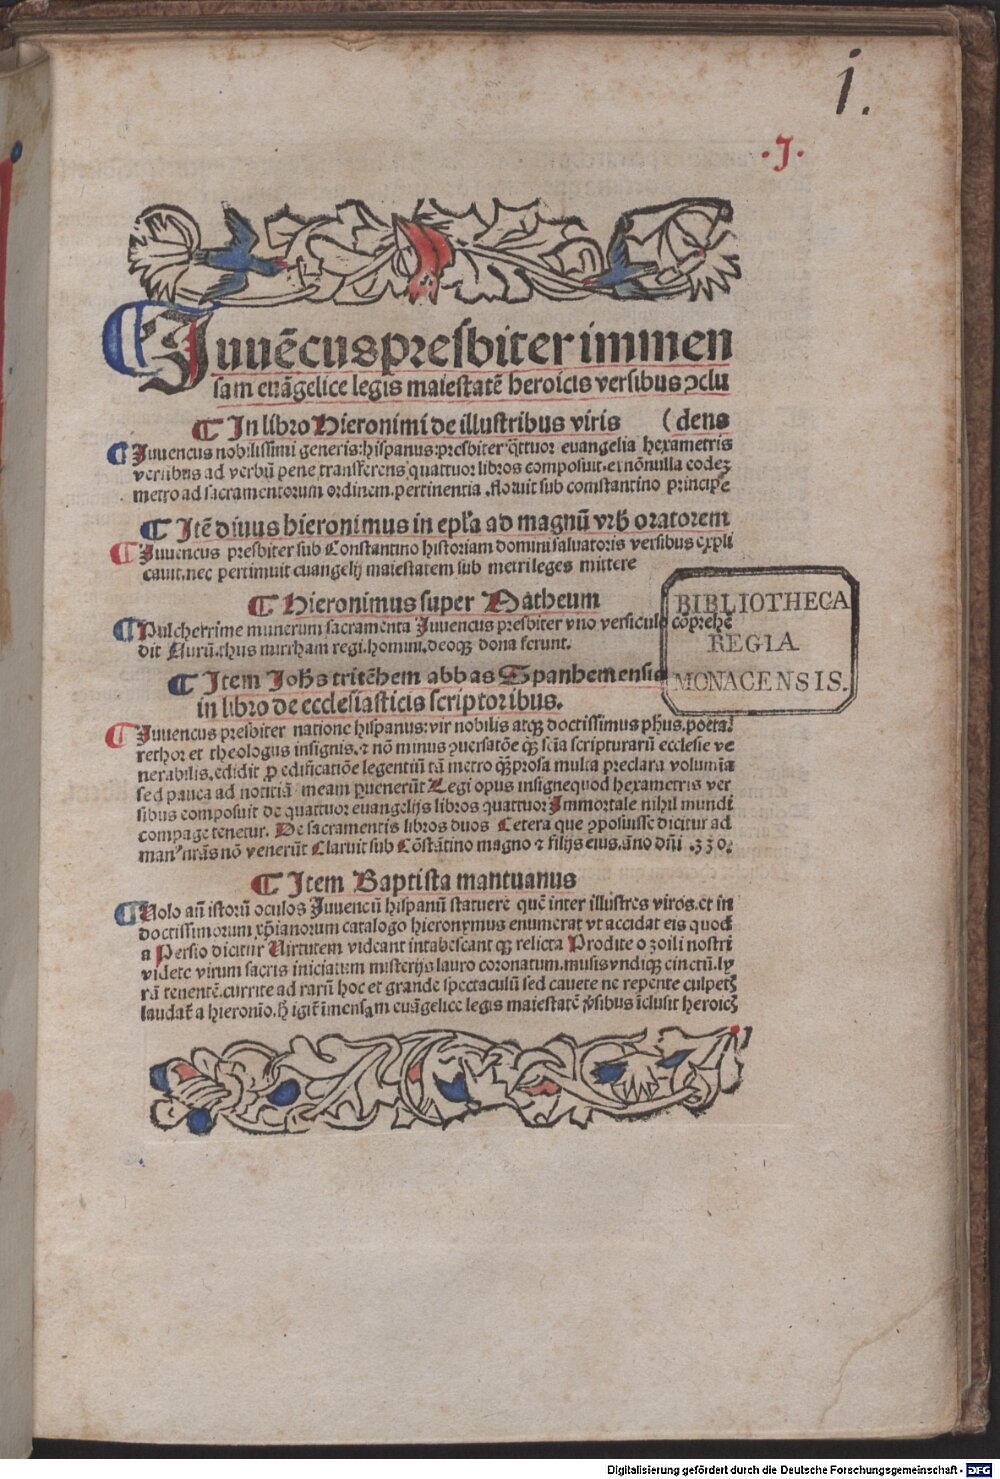 i.
.J.
¶ Juuēcus presbiter immen
sam euāgelice legis maiestatē heroicis versibus ɔclu
¶ In libro Hieronimi de illustribus viris (dens
¶ Juuencus nobilissimi generis: hispanus: presbiter q̄ttuor euangelia hexametris
versibus ad verbū pene transferens quattuor libros composuit. et nōnulla eodeꝫ
metro ad sacramentorum ordinem. pertinentia . floruit sub comstantino principe
¶ Itē diuus hieronimus in epl'a ad magnū vrb̄ oratorem
¶ Juuencus presbiter sub Constantino historiam domini saluatoris versibus expli
cauit. nec pertimuit euangelij maiestatem sub metri leges mittere
¶ Hieronimus super Matheum
¶ Pulcherrime munerum sacramenta Juuencus presbiter vno versiculo cōprehē
dit Aurū. thus mirrham regi. homini. deoqꝫ dona ferunt.
¶ Item Joh̄s tritēhem abbas Spanhemensis
in libro de ecclesiasticis scriptoribus.
¶ Juuencus presbiter natione hispanus: vir nobilis atqꝫ doctissimus ph̄us. poeta.
rethor et theologus insignis. ⁊ nō minus ɔuersatōe qꝫ̄ scīa scripturarū ecclesie ve
nerabilis. edidit ꝓ edificatiōe legentiū tā metro qꝫ̄ prosa multa preclara volumīa
sed pauca ad notitiā meam ꝑuenerūt Legi opus insigne quod hexametris ver
sibus composuit de quattuor euangelijs libros quattuor Immortale nihil mundi
compage tenetur. De sacramentis libros duos Cetera que ɔposuisse dicitur ad
man⁹ nr̄as nō venerūt Claruit sub Cōstātino magno ⁊ filijs eius. āno dn̄i .330.
¶ Item Baptista mantuanus
¶ Uolo an̄ istorū oculos Juuencū hispanū statuere quē inter illustres viros. et in
doctissimorum xp̄ianorum catalogo hieronymus enumerat vt accidat eis quod
a Persio dicitur Uirtutem videant intabescant qꝫ relicta Prodite o zoili nostri
videte virum sacris iniciatum misterijs lauro coronatum. musis vndiqꝫ cinctū. ly
rā tenentē. currite ad rarū hoc et grande spectaculū sed cauete ne repente culpetꝭ
laudat̄ a hieronīo. h̄ igit̄ īmensam euāgelice legis maiestatē v̄sibus īclusit heroicꝭ
BIBLIOTHECA
REGIA
MONACENSIS.
Digitalisierung gefördert durch die Deutsche Forschungsgemeinschaft - DFG